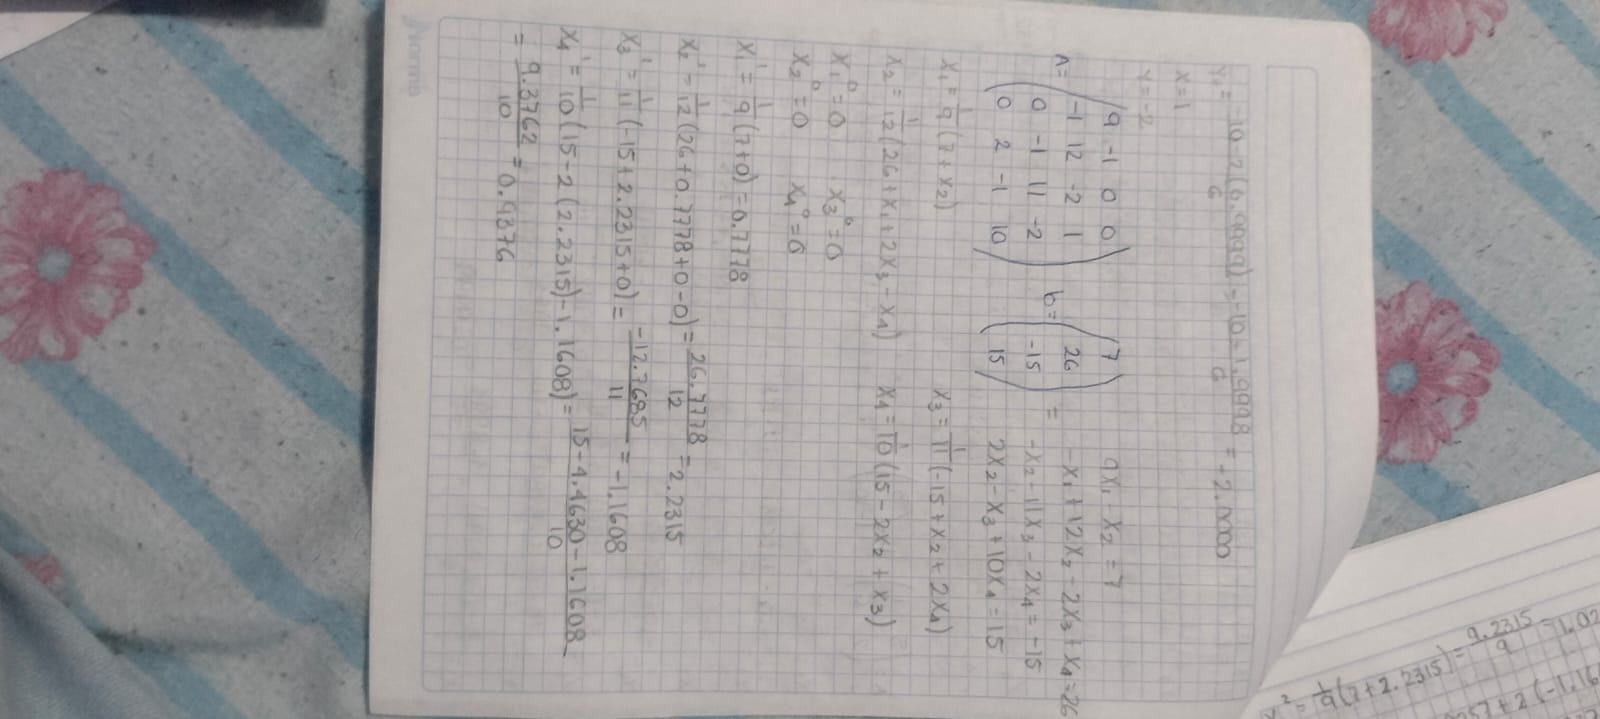 Y₁ = -10-2(0.9999) = -10-1.9998 = -2.0000
6 6
X=1
Y=-2
A= (9 -1 0 0) b= (7) 9X₁ - X₂ = 7
(-1 12 -2 1) (26) = -X₁ + 12X₂ - 2X₃ + X₄ = 26
(0 -1 11 -2) (-15) -X₂ - 11X₃ - 2X₄ = -15
(0 2 -1 10) (15) 2X₂ - X₃ + 10X₄ = 15
X₁ = 1/9 (7 + X₂) X₃ = 1/11 (-15 + X₂ + 2X₄)
X₂ = 1/12 (26 + X₁ + 2X₃ - X₄) X₄ = 1/10 (15 - 2X₂ + X₃)
X₁⁰ = 0 X₃⁰ = 0
X₂⁰ = 0 X₄⁰ = 0
X₁¹ = 1/9 (7+0) = 0.7778
X₂¹ = 1/12 (26 + 0.7778 + 0 - 0) = 26.7778/12 = 2.2315
X₃¹ = 1/11 (-15 + 2.2315 + 0) = -12.7685/11 = -1.1608
X₄¹ = 1/10 (15 - 2(2.2315) - 1.1608) = 15 - 4.4630 - 1.1608/10
= 9.3762/10 = 0.9376
Norma
X₁² = 1/9 (7 + 2.2315) = 9.2315/9 = 1.02